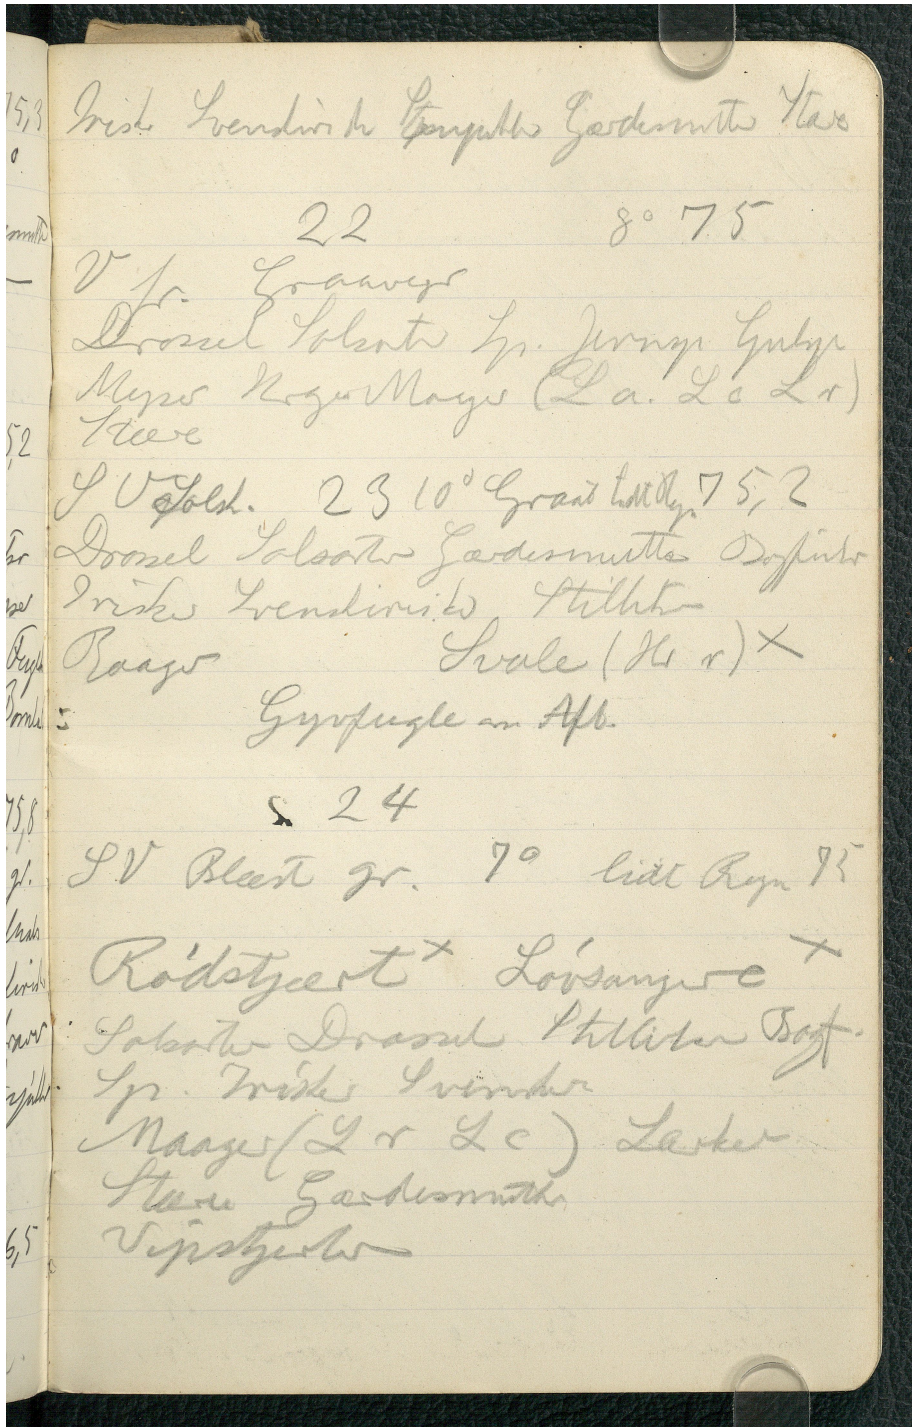 Irisk Svenskirisk Gærdesmutte Stær
22 8° 75
V fr. Graaveyr
Drossel Solsorte Sp. Jernsp. Gulsp
Mejser Krager Maager (L a. L c L r)
Stære
S V Solsk. 23 10° Graat lidt Rg. 75,2
Drossel Solsorte Gærdesmutte Bogfinker
Iriske Svenskiriske Stillitser
Raager Svale (Hr r) X
Gyvfugle en Afb.
S. 24
S V Blæst gr. 7° lidt Regn 75
Rødstjert X Løvsangere X
Solsorte Drossel Stillitser Bogf.
Sp. Iriske Svenske
Maager (L r L c) Lærker
Stære Gærdesmutte
Vipstjerter